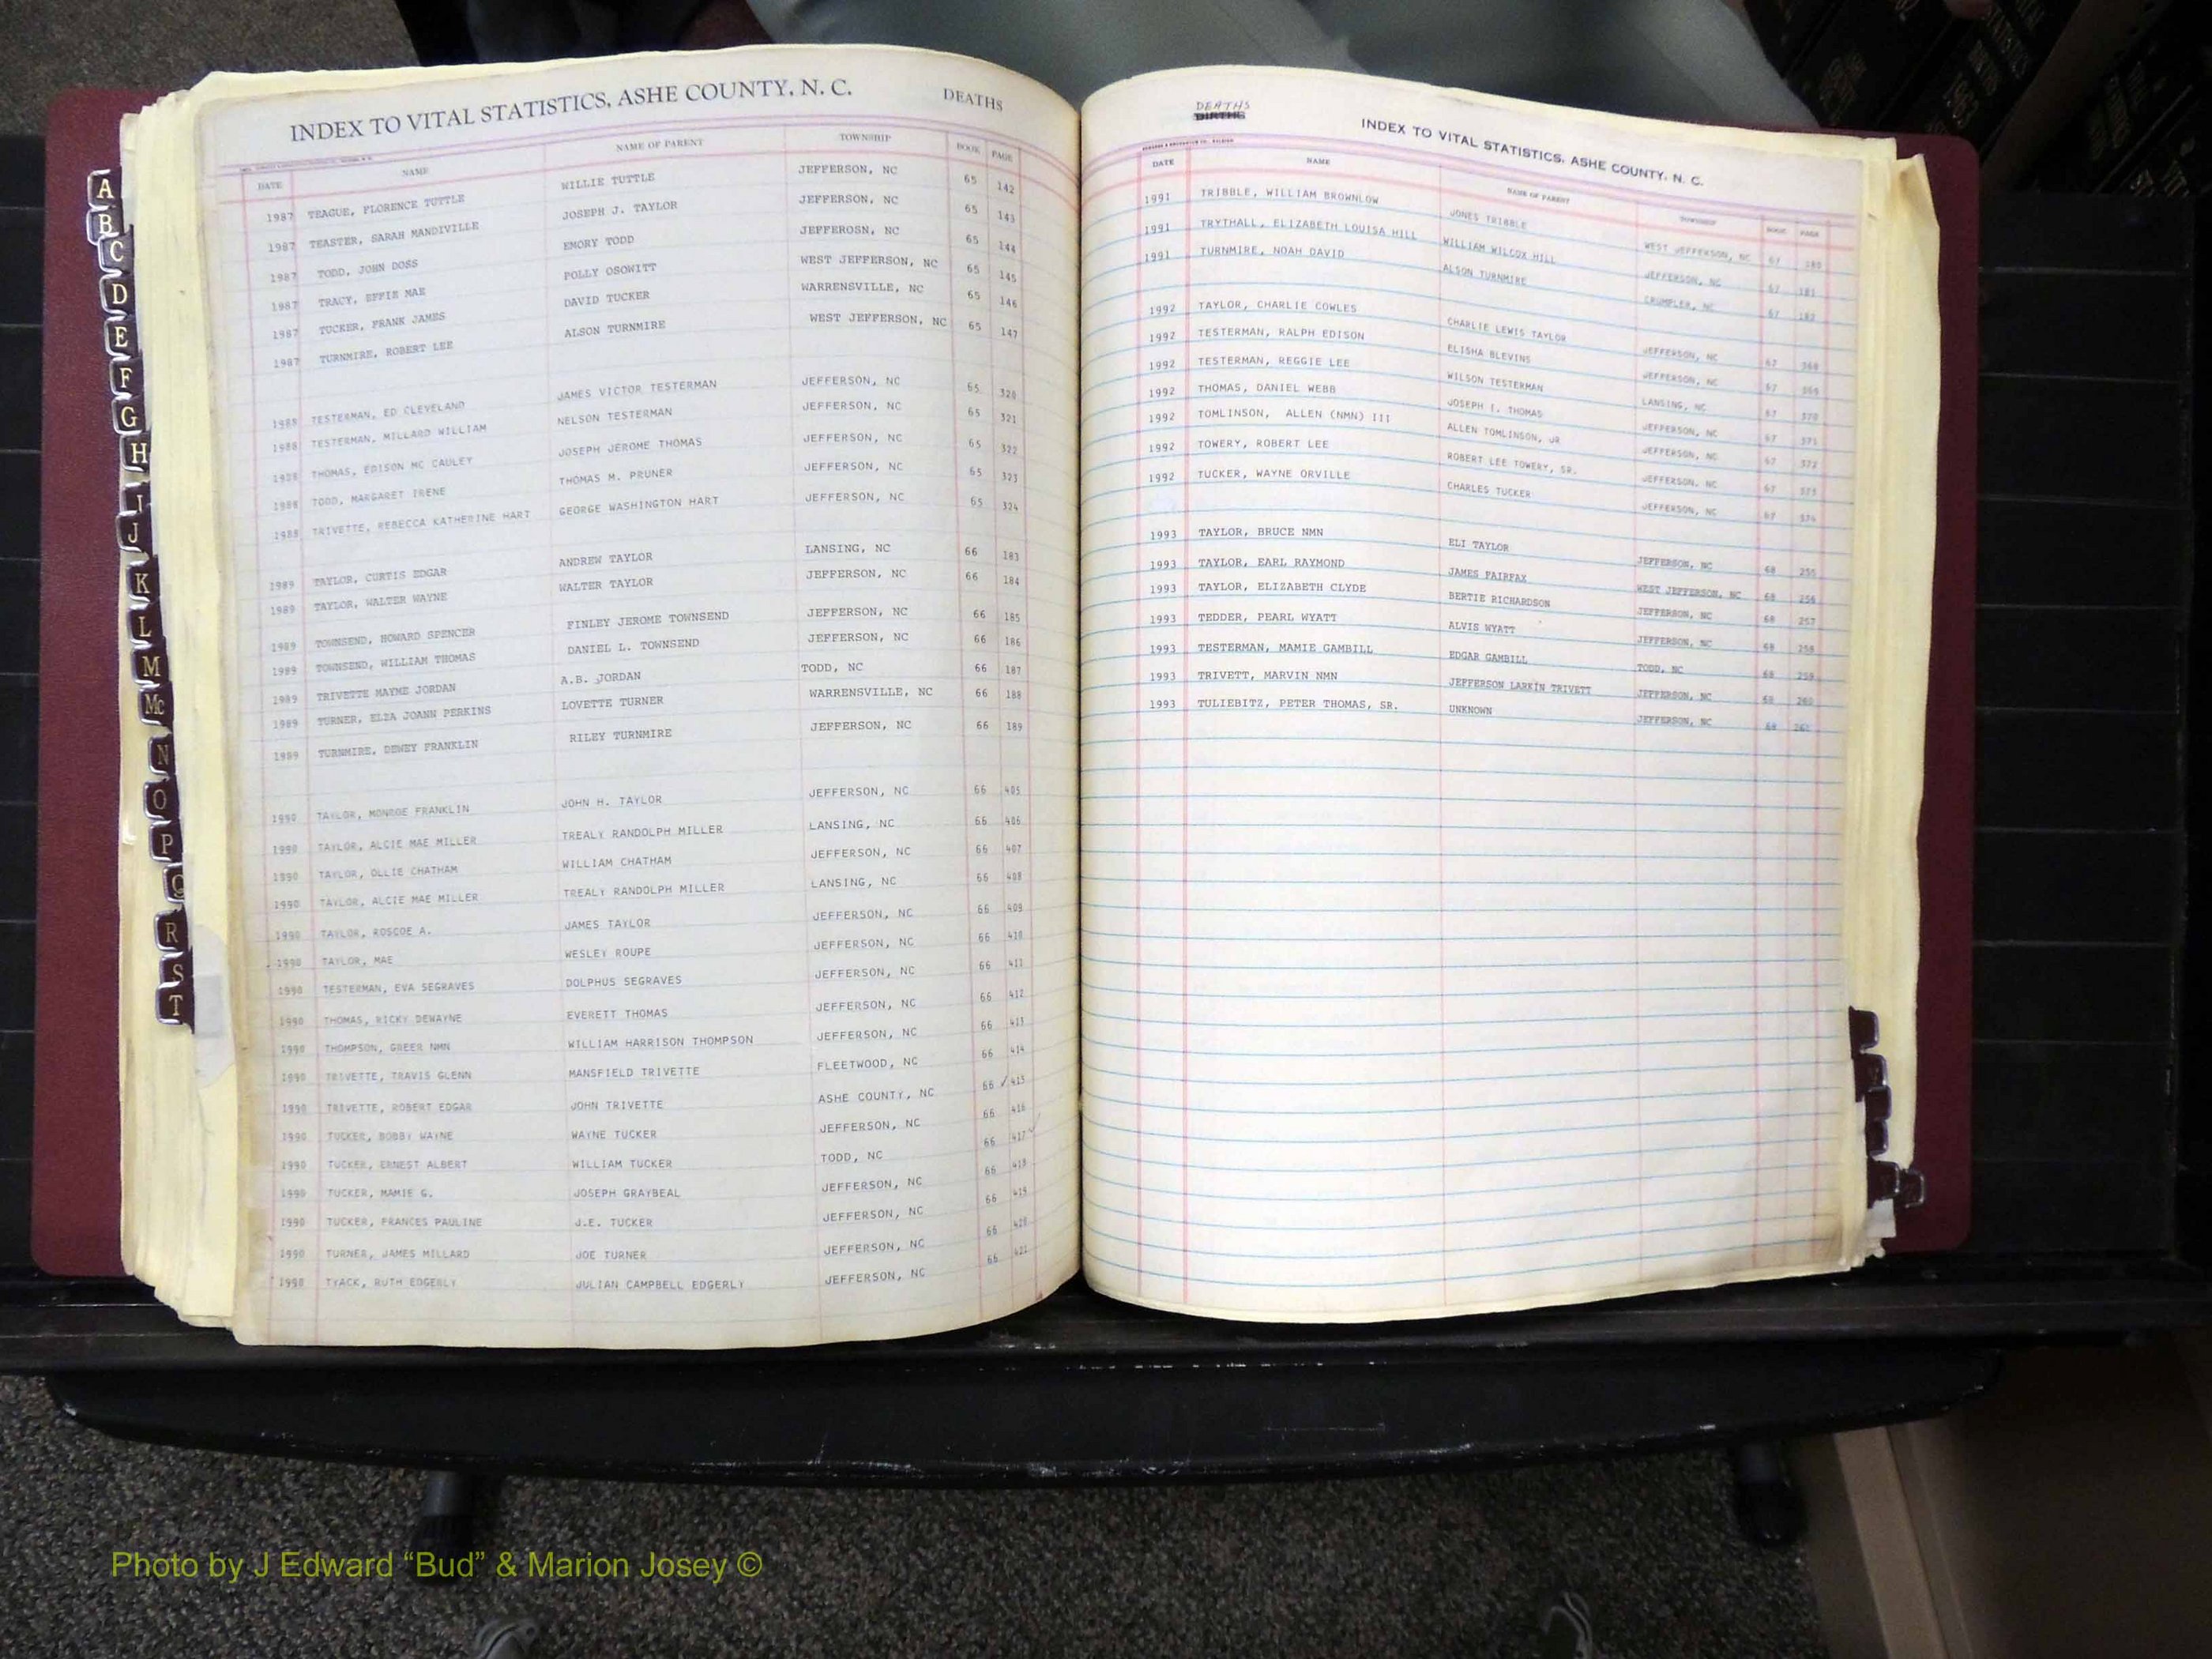 INDEX TO VITAL STATISTICS, ASHE COUNTY, N. C. DEATHS
DATE NAME NAME OF PARENT TOWNSHIP BOOK PAGE
1987 TEAGUE, FLORENCE TUTTLE WILLIE TUTTLE JEFFERSON, NC 65 142
1987 TEASTER, SARAH MANDIVILLE JOSEPH J. TAYLOR JEFFERSON, NC 65 143
1987 TODD, JOHN DOSS EMORY TODD JEFFEROSN, NC 65 144
1987 TRACY, EFFIE MAE POLLY OSOWITT WEST JEFFERSON, NC 65 145
1987 TUCKER, FRANK JAMES DAVID TUCKER WARRENSVILLE, NC 65 146
1987 TURNMIRE, ROBERT LEE ALSON TURNMIRE WEST JEFFERSON, NC 65 147
1988 TESTERMAN, ED CLEVELAND JAMES VICTOR TESTERMAN JEFFERSON, NC 65 320
1988 TESTERMAN, MILLARD WILLIAM NELSON TESTERMAN JEFFERSON, NC 65 321
1988 THOMAS, EDISON MC CAULEY JOSEPH JEROME THOMAS JEFFERSON, NC 65 322
1988 TODD, MARGARET IRENE THOMAS M. PRUNER JEFFERSON, NC 65 323
1988 TRIVETTE, REBECCA KATHERINE HART GEORGE WASHINGTON HART JEFFERSON, NC 65 324
1989 TAYLOR, CURTIS EDGAR ANDREW TAYLOR LANSING, NC 66 183
1989 TAYLOR, WALTER WAYNE WALTER TAYLOR JEFFERSON, NC 66 184
1989 TOWNSEND, HOWARD SPENCER FINLEY JEROME TOWNSEND JEFFERSON, NC 66 185
1989 TOWNSEND, WILLIAM THOMAS DANIEL L. TOWNSEND JEFFERSON, NC 66 186
1989 TRIVETTE MAYME JORDAN A.B. JORDAN TODD, NC 66 187
1989 TURNER, ELZA JOANN PERKINS LOVETTE TURNER WARRENSVILLE, NC 66 188
1989 TURNMIRE, DEWEY FRANKLIN RILEY TURNMIRE JEFFERSON, NC 66 189
1990 TAYLOR, MONROE FRANKLIN JOHN H. TAYLOR JEFFERSON, NC 66 405
1990 TAYLOR, ALCIE MAE MILLER TREALY RANDOLPH MILLER LANSING, NC 66 406
1990 TAYLOR, OLLIE CHATHAM WILLIAM CHATHAM JEFFERSON, NC 66 407
1990 TAYLOR, ALCIE MAE MILLER TREALY RANDOLPH MILLER LANSING, NC 66 408
1990 TAYLOR, ROSCOE A. JAMES TAYLOR JEFFERSON, NC 66 409
1990 TAYLOR, MAE WESLEY ROUPE JEFFERSON, NC 66 410
1990 TESTERMAN, EVA SEGRAVES DOLPHUS SEGRAVES JEFFERSON, NC 66 411
1990 THOMAS, RICKY DEWAYNE EVERETT THOMAS JEFFERSON, NC 66 412
1990 THOMPSON, GREER NMN WILLIAM HARRISON THOMPSON JEFFERSON, NC 66 413
1990 TRIVETTE, TRAVIS GLENN MANSFIELD TRIVETTE FLEETWOOD, NC 66 414
1990 TRIVETTE, ROBERT EDGAR JOHN TRIVETTE ASHE COUNTY, NC 66 ✓ 415
1990 TUCKER, BOBBY WAYNE WAYNE TUCKER JEFFERSON, NC 66 416
1990 TUCKER, ERNEST ALBERT WILLIAM TUCKER TODD, NC 66 417 ✓
1990 TUCKER, MAMIE G. JOSEPH GRAYBEAL JEFFERSON, NC 66 418
1990 TUCKER, FRANCES PAULINE J.E. TUCKER JEFFERSON, NC 66 419
1990 TURNER, JAMES MILLARD JOE TURNER JEFFERSON, NC 66 420
1990 TYACK, RUTH EDGERLY JULIAN CAMPBELL EDGERLY JEFFERSON, NC 66 421
A
B
C
D
E
F
G
H
I
J
K
L
M
Mc
N
O
P
Q
R
S
T
DEATHS
BIRTHS
INDEX TO VITAL STATISTICS, ASHE COUNTY, N. C.
DATE NAME NAME OF PARENT TOWNSHIP BOOK PAGE
1991 TRIBBLE, WILLIAM BROWNLOW JONES TRIBBLE WEST JEFFERSON, NC 67 180
1991 TRYTHALL, ELIZABETH LOUISA HILL WILLIAM WILCOX HILL JEFFERSON, NC 67 181
1991 TURNMIRE, NOAH DAVID ALSON TURNMIRE CRUMPLER, NC 67 182
1992 TAYLOR, CHARLIE COWLES CHARLIE LEWIS TAYLOR JEFFERSON, NC 67 368
1992 TESTERMAN, RALPH EDISON ELISHA BLEVINS JEFFERSON, NC 67 369
1992 TESTERMAN, REGGIE LEE WILSON TESTERMAN LANSING, NC 67 370
1992 THOMAS, DANIEL WEBB JOSEPH I. THOMAS JEFFERSON, NC 67 371
1992 TOMLINSON, ALLEN (NMN) III ALLEN TOMLINSON, JR JEFFERSON, NC 67 372
1992 TOWERY, ROBERT LEE ROBERT LEE TOWERY, SR. JEFFERSON, NC 67 373
1992 TUCKER, WAYNE ORVILLE CHARLES TUCKER JEFFERSON, NC 67 374
1993 TAYLOR, BRUCE NMN ELI TAYLOR JEFFERSON, NC 68 255
1993 TAYLOR, EARL RAYMOND JAMES FAIRFAX WEST JEFFERSON, NC 68 256
1993 TAYLOR, ELIZABETH CLYDE BERTIE RICHARDSON JEFFERSON, NC 68 257
1993 TEDDER, PEARL WYATT ALVIS WYATT JEFFERSON, NC 68 258
1993 TESTERMAN, MAMIE GAMBILL EDGAR GAMBILL TODD, NC 68 259
1993 TRIVETT, MARVIN NMN JEFFERSON LARKIN TRIVETT JEFFERSON, NC 68 260
1993 TULIEBITZ, PETER THOMAS, SR. UNKNOWN JEFFERSON, NC 68 261
1963
Photo by J Edward “Bud” & Marion Josey ©